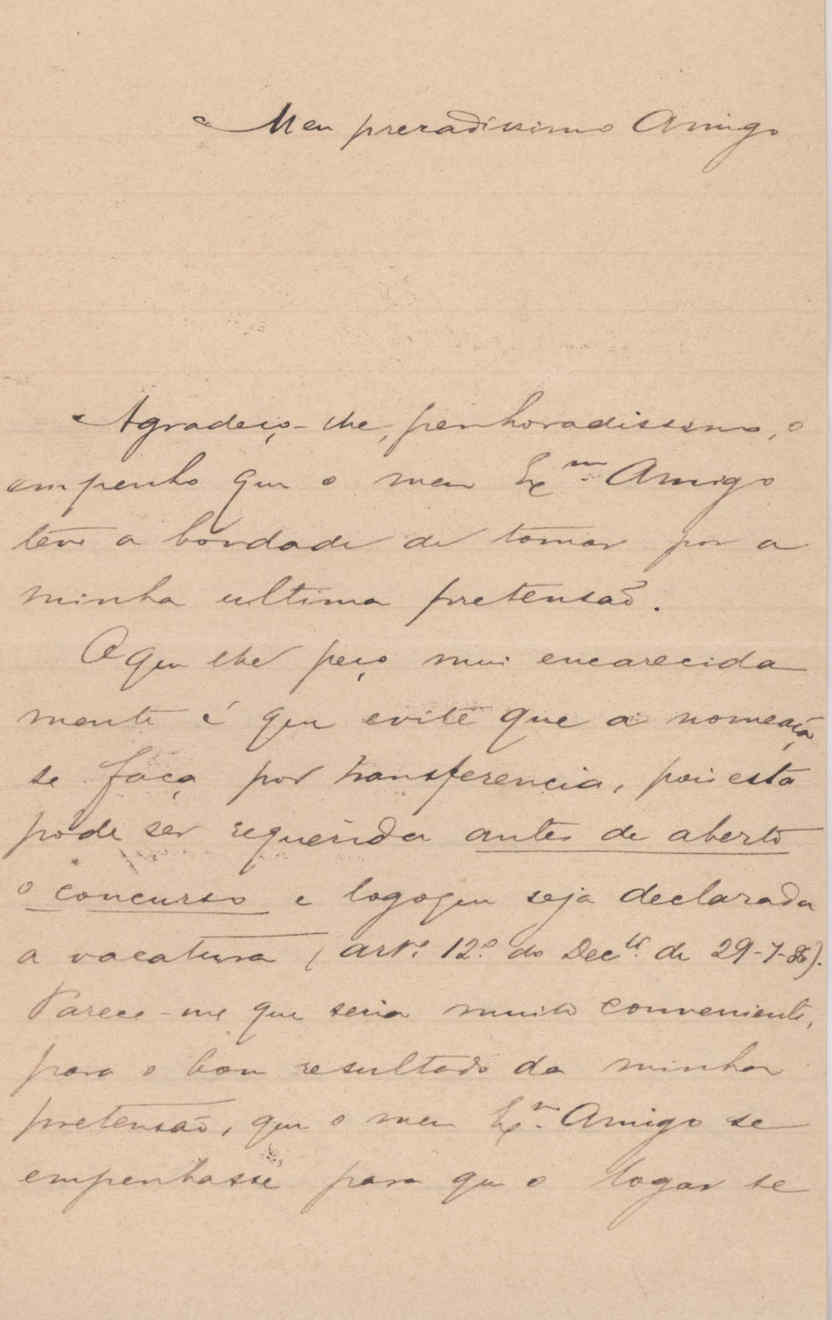 Meu presadissimo Amigo
Agradeço-lhe, penhoradissimo, o
empenho que o meu Ex.mo Amigo
teve a bondade de tomar por a
minha ultima pretensão.
O que lhe peço mui encarecida
mente é que evite que a nomeação
se faça por transferencia, pois esta
póde ser requerida antes de aberto
o concurso e logo que seja declarada
a vacatura (art.º 12.º do Dec.to de 29-7-86).
Parece-me que seria muito conveniente,
para o bom resultado da minha
pretensão, que o meu Ex.mo Amigo se
empenhasse para que o logar se